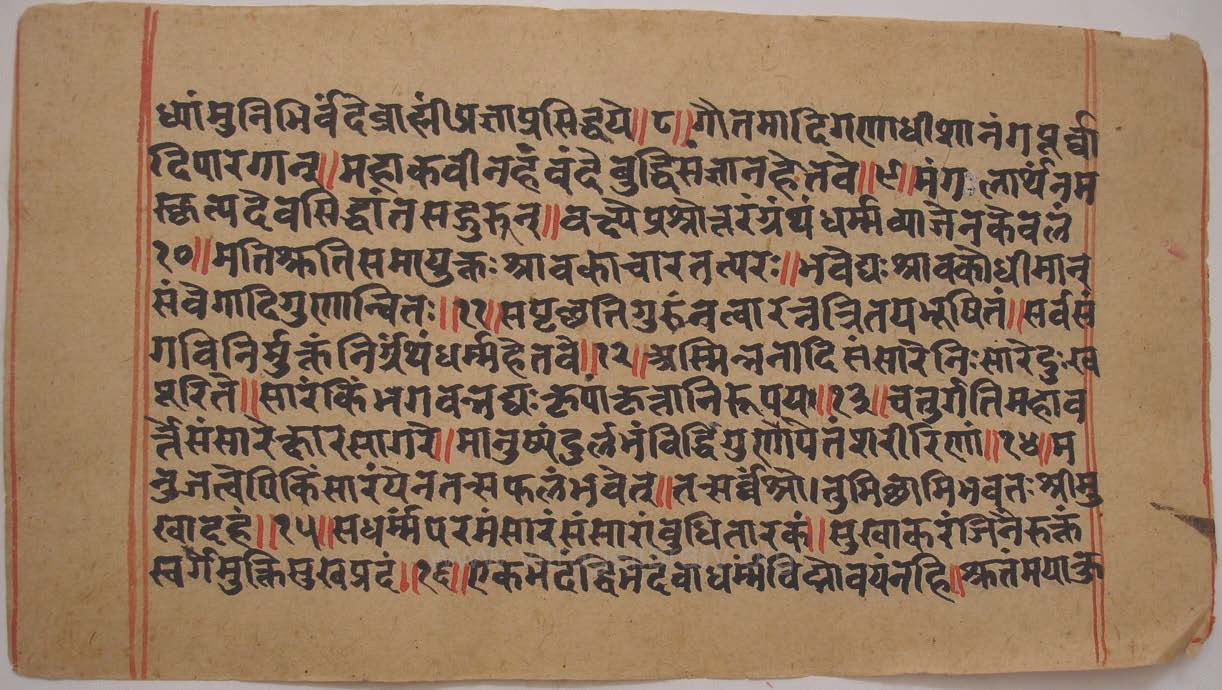 ध्यां मुनिभिर्वंदे ब्राह्मीं प्रज्ञाप्रसिद्धये॥८॥गौतमादिगणाधीशानंगपूर्व्वा
दिपारगान्॥महाकवीनहं वंदे बुद्धिसंज्ञानहेतवे॥९॥मंगलार्थं नम
स्कृत्य देवसिद्धांतसद्गुरून्॥वक्ष्ये प्रश्नोत्तरं ग्रंथं धर्म्मव्याजेन केवलं
१०॥मतिश्रुतिसमायुक्तः श्रावकाचारतत्परः॥भवेद्यः श्रावको धीमान्
संवेगादिगुणान्वितः॥११॥स पृच्छति गुरुं नत्वा रत्नत्रितयभूषितं॥सर्वसं
गविनिर्मुक्तं निर्ग्रंथं धर्म्महेतवे॥१२॥अस्मिन्ननादिसंसारे निःसारे दुःख
पूरिते॥सारं किं भगवन्नद्यः कृपां कृत्वा निरूपय॥१३॥चतुर्गतिमहाव
र्त्ते संसारे क्षारसागरे॥मानुष्यं दुर्लभं विद्धि गुणोपेतं शरीरिणां॥१४॥म
नुजत्वेपि किं सारं येन तत्सफलं भवेत्॥तत्सर्व्वं श्रोतुमिछामि भवतः श्रीमु
खादहं॥१५॥सधर्म्मं परमं सारं संसारांबुधितारकं॥सुखाकरं जिनैरुक्तं
स्वर्गमुक्तिसुखप्रदं॥१६॥एकभेदं द्विभेदं वा धर्म्मं विद्मो वयं नहि॥श्रुतं मया कु